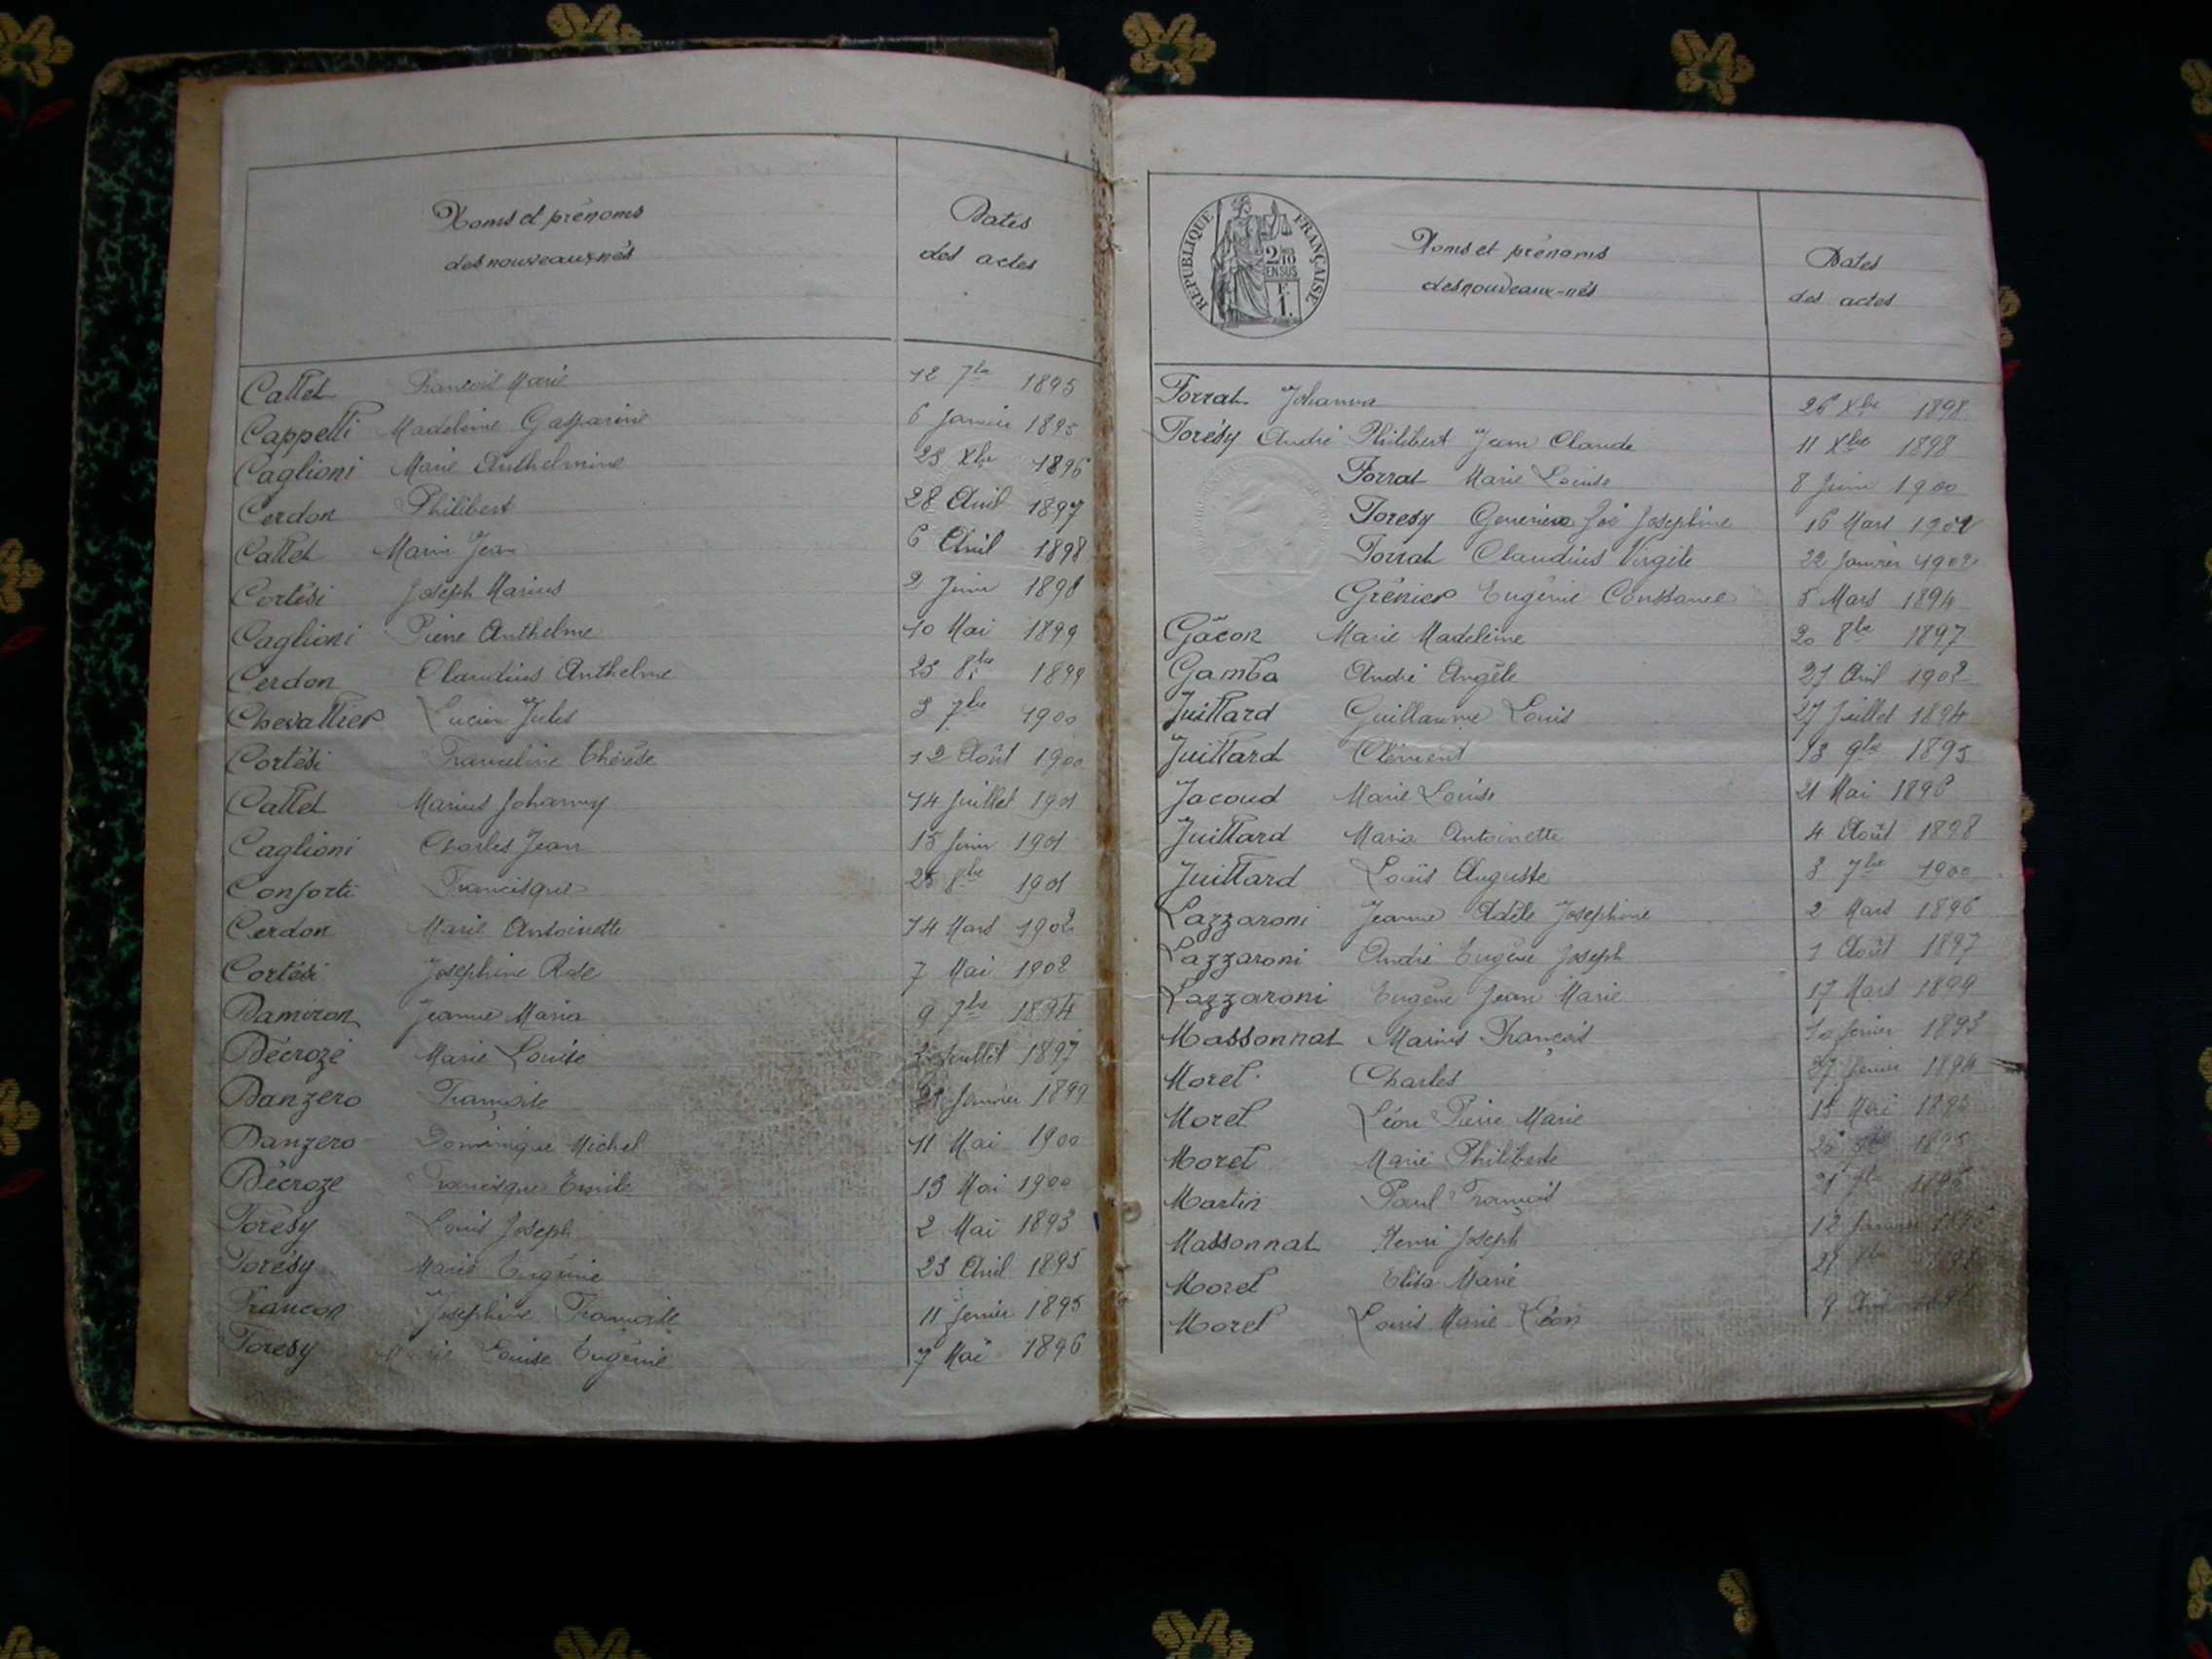 Noms et prénoms
des nouveaux-nés
Dates
des actes
Cattet François Marie 12 7bre 1895
Cappelli Madeleine Gasparine 6 Janvier 1895
Caglioni Marie Anthelmine 23 Xbre 1896
Cerdon Philibert 28 Avril 1897
Cattet Marie Jean 6 Avril 1898
Cortési Joseph Marius 2 Juin 1898
Caglioni Pierre Anthelme 10 Mai 1899
Cerdon Claudius Anthelme 23 8bre 1899
Chevallier Lucien Jules 3 7bre 1900
Cortési Franceline Thérèse 12 Août 1900
Cattet Marius Johanny 14 Juillet 1901
Caglioni Charles Jean 15 Juin 1901
Conforti Francisque 25 8bre 1901
Cerdon Marie Antoinette 14 Mars 1902
Cortési Joséphine Rose 7 Mai 1902
Damiron Jeanne Maria 9 7bre 1894
Décrozé Marie Louise Juillet 1897
Danzero Françoise 21 Janvier 1899
Danzero Dominique Michel 11 Mai 1900
Décroze Francisque Emile 13 Mai 1900
Forésy Louis Joseph 2 Mai 1893
Forésy Marie Eugénie 23 Avril 1895
Francon Joséphine Françoise 11 Février 1895
Forésy Marie Louise Eugénie 7 Mai 1896
REPUBLIQUE FRANÇAISE
2/10 EN SUS
F. 1.
Noms et prénoms
des nouveaux-nés
Dates
des actes
Forrat Johanna 26 Xbre 1898
Forésy André Philibert Jean Claude 11 Xbre 1898
Forrat Marie Louise 8 Juin 1900
Foresy Joséphine 16 Mars
Forrat Claudius Virgile 22 Janvier 1902
Grénier Eugénie Constance 5 Mars 1894
Gâcon Marie Madeleine 20 8bre 1897
Gamba André Angèle 27 Avril 1902
Juillard Guillaume Louis 27 Juillet 1894
Juillard Clément 13 9bre 1895
Jacoud Marie Louise 21 Mai 1896
Juillard Maria Antoinette 4 Août 1898
Juillard Louis Auguste 3 7bre 1900
Lazzaroni Jeanne Adèle Joséphine 2 Mars 1896
Lazzaroni André Eugène Joseph 1 Août 1897
Lazzaroni Eugène Jean Marie 17 Mars 1899
Massonnat Marius François 10 février 1893
Morel Charles 27 février 1894
Morel Léon Pierre Marie 15 Mai
Morel Marie Philiberte
Martin Paul François 21
Massonnat Henri Joseph 12 Janvier
Morel Elisa Marie
Morel Louis Marie Léon 9